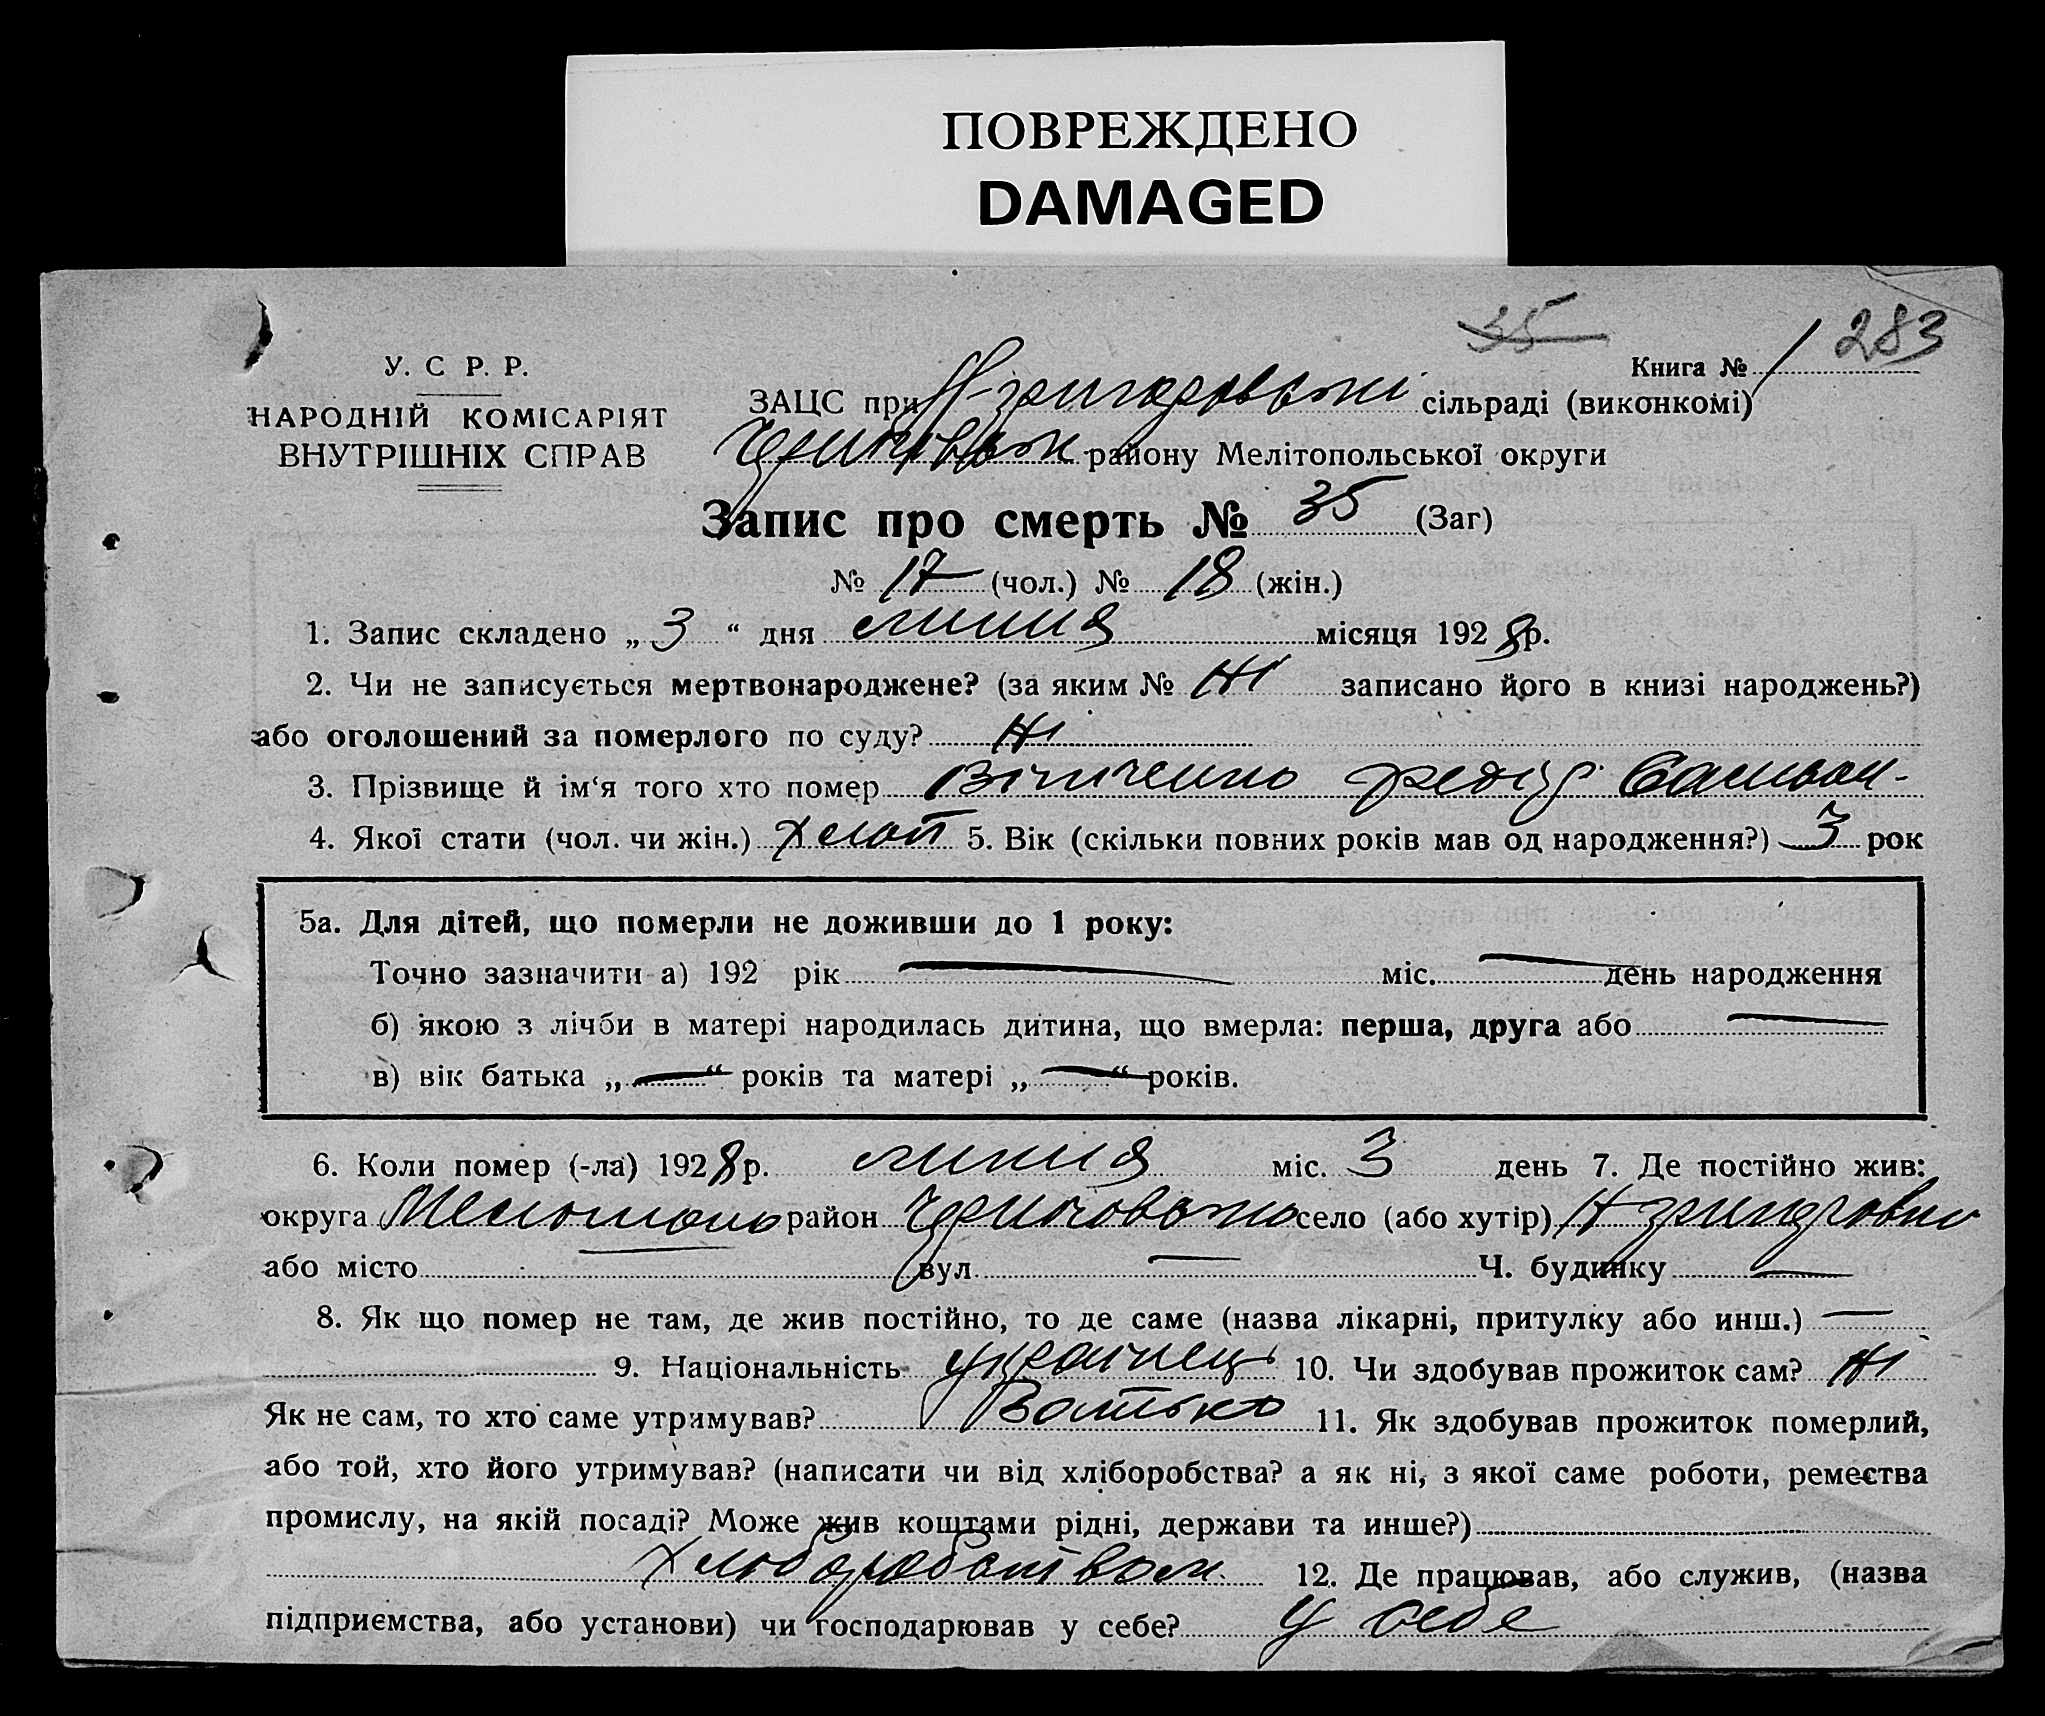 ПОВРЕЖДЕНО
DAMAGED
35
283
Книга № 1
У. С. Р. Р.
НАРОДНІЙ КОМІСАРІЯТ
ВНУТРІШНІХ СПРАВ
ЗАЦС при сільраді (виконкомі)
району Мелітопольської округи
Запис про смерть № 35 (Заг)
№ 17 (чол.) № 18 (жін.)
1. Запис складено „ 3 “ дня липня місяця 1928 р.
2. Чи не записується мертвонароджене? (за яким № Ні записано його в книзі народжень?)
або оголошений за померлого по суду? Ні
3. Прізвище й ім‘я того хто помер
4. Якої стати (чол. чи жін.) хлоп 5. Вік (скільки повних років мав од народження?) 3 рок
5а. Для дітей, що померли не доживши до 1 року:
Точно зазначити а) 192 рік — міс. — день народження
б) якою з лічби в матері народилась дитина, що вмерла: перша, друга або —
в) вік батька „ — “ років та матері „ — “ років.
6. Коли помер (-ла) 1928 р. липня міс. 3 день 7. Де постійно жив:
округа район село (або хутір)
або місто — вул. — Ч. будинку —
8. Як що помер не там, де жив постійно, то де саме (назва лікарні, притулку або инш.) —
9. Національність українець 10. Чи здобував прожиток сам? Ні
Як не сам, то хто саме утримував? Батько 11. Як здобував прожиток померлий,
або той, хто його утримував? (написати чи від хліборобства? а як ні, з якої саме роботи, ремества
промислу, на якій посаді? Може жив коштами рідні, держави та инше?)
хлюборобством. 12. Де працював, або служив, (назва
підприємства, або установи) чи господарював у себе? У себе